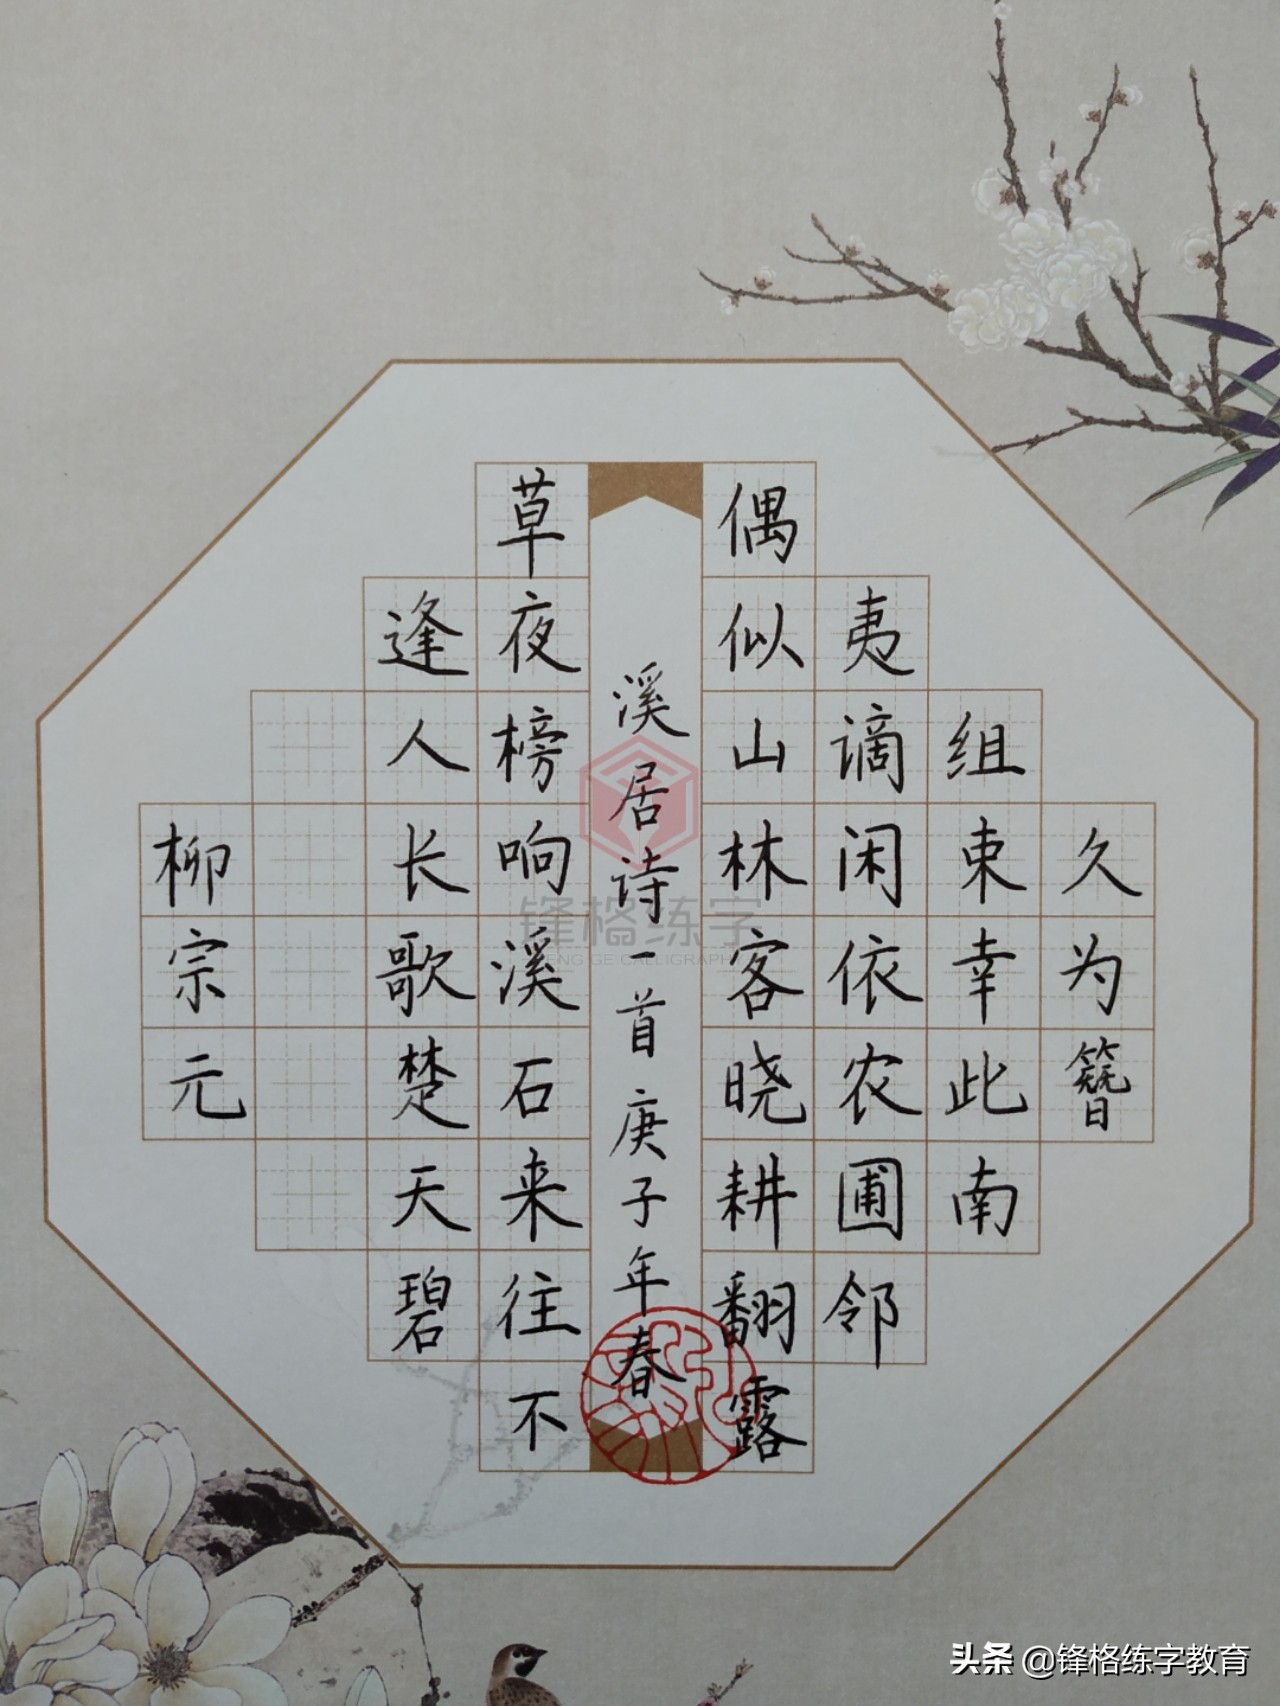 久为簪
组束幸此南
夷谪闲依农圃邻
偶似山林客晓耕翻露
溪居诗一首庚子年春
草夜榜响溪石来往不
逢人长歌楚天碧
柳宗元
锋格练字
FENG GE CALLIGRAPHY
头条 @锋格练字教育